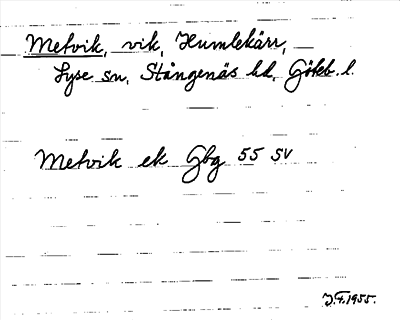 Metvik, vik, Humlekärr,
Lyse sn, Stångenäs hd, Göteb. l.
Metvik ek Gbg 55 SV
J.F. 1955.